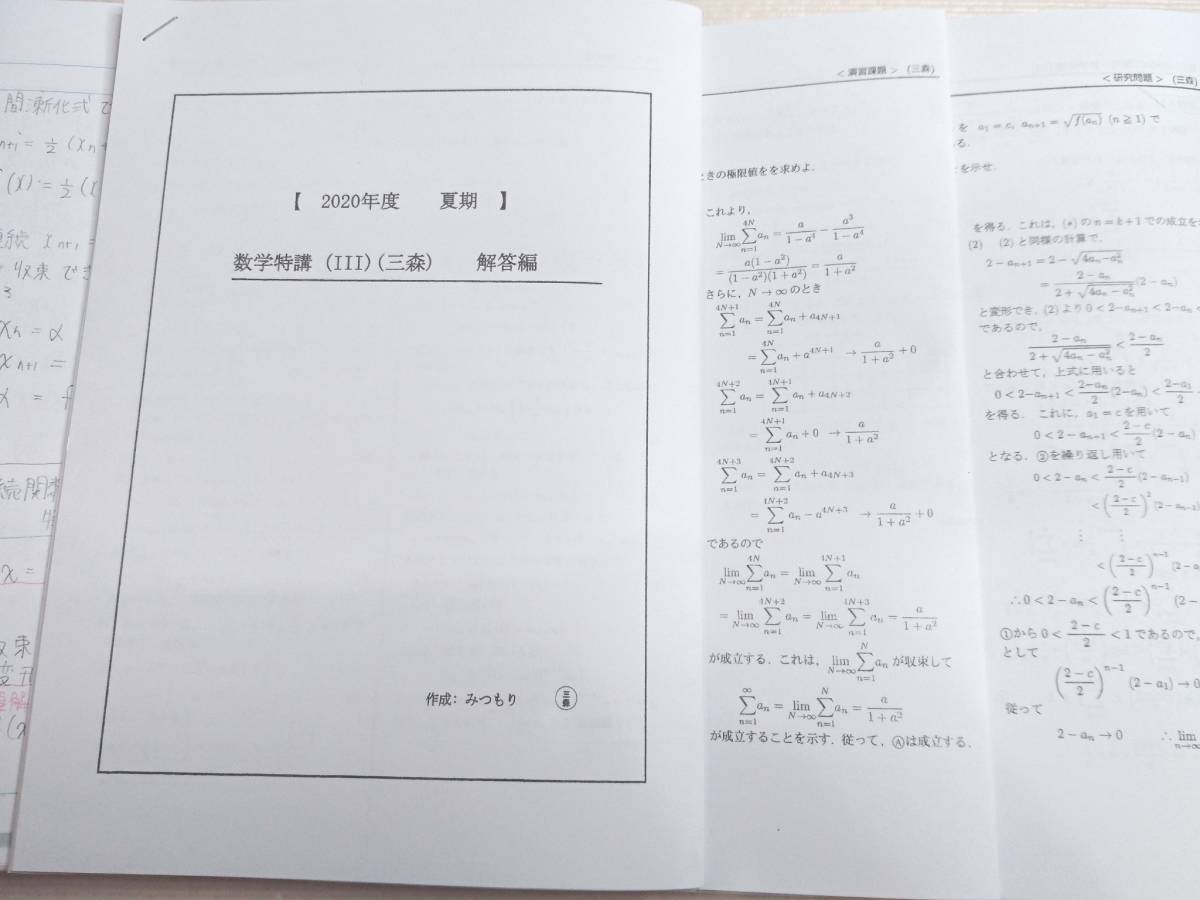 間漸化式で
n+1 = 1/2 (xn+
(x) = 1/2 (x
連続 xn+1 =
収束 でき
xn = α
xn+1 =
α = f
続関数
x =
収束
変形
(x
【 2020年度 夏期 】
数学特講 (III)(三森) 解答編
作成: みつもり 三森
<演習課題> (三森)
ときの極限値をを求めよ.
これより,
lim_{N→∞} Σ_{n=1}^{4N} a_n = a/(1−a^4) − a^3/(1−a^4)
= a(1−a^2)/((1−a^2)(1+a^2)) = a/(1+a^2)
さらに, N→∞のとき
Σ_{n=1}^{4N+1} a_n = Σ_{n=1}^{4N} a_n + a_{4N+1}
= Σ_{n=1}^{4N} a_n + a^{4N+1} → a/(1+a^2) + 0
Σ_{n=1}^{4N+2} a_n = Σ_{n=1}^{4N+1} a_n + a_{4N+2}
= Σ_{n=1}^{4N+1} a_n + 0 → a/(1+a^2)
Σ_{n=1}^{4N+3} a_n = Σ_{n=1}^{4N+2} a_n + a_{4N+3}
= Σ_{n=1}^{4N+2} a_n − a^{4N+3} → a/(1+a^2) + 0
であるので
lim_{N→∞} Σ_{n=1}^{4N} a_n = lim_{N→∞} Σ_{n=1}^{4N+1} a_n
= lim_{N→∞} Σ_{n=1}^{4N+2} a_n = lim_{N→∞} Σ_{n=1}^{4N+3} a_n = a/(1+a^2)
が成立する. これは, lim_{N→∞} Σ_{n=1}^{N} a_n が収束して
Σ_{n=1}^{∞} a_n = lim_{N→∞} Σ_{n=1}^{N} a_n = a/(1+a^2)
が成立することを示す. 従って, Ⓐは成立する.
<研究問題> (三森)
を a_1 = c, a_{n+1} = √f(a_n) (n≧1) で
る.
を示せ.
を得る. これは, (*)の n = k+1 での成立を
(2) (2)と同様の計算で,
2 − a_{n+1} = 2 − √(4a_n − a_n^2)
= (2−a_n)/(2+√(4a_n−a_n^2)) (2−a_n)
と変形でき, (2)より 0 < 2−a_{n+1} < 2−a_n <
であるので,
(2−a_n)/(2+√(4a_n−a_n^2)) < (2−a_n)/2
と合わせて, 上式に用いると
0 < 2−a_{n+1} < (2−a_n)/2 (2−a_n) < (2−a_1)/2
を得る. これに, a_1 = c を用いて
0 < 2 − a_{n+1} < (2−c)/2 (2−a_n)
となる. ②を繰り返し用いて
0 < 2 − a_n < (2−c)/2 (2−a_{n−1})
< ((2−c)/2)^2 (2−a_{n−2})
⋮ ⋮
< ((2−c)/2)^{n−1} (2−a
∴ 0 < 2 − a_n < ((2−c)/2)^{n−1} (2−
①から 0 < (2−c)/2 < 1 であるので,
として
((2−c)/2)^{n−1} (2−a_1) → 0
従って
2 − a_n → 0 ∴ lim_{n→∞}